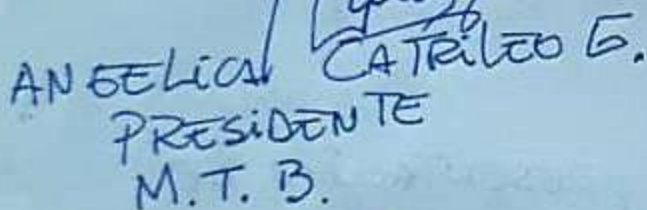 ANGELICA CATRILEO G.
PRESIDENTE
M.T.B.